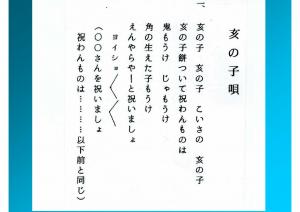 亥の子唄
一、
亥の子 亥の子 こいさの 亥の子
亥の子餅ついて祝わんものは
鬼もうけ じゃもうけ
角の生えた子もうけ
えんやらやーと祝いましょ
ヨイショ〱〱
(〇〇さんを祝いましょ
祝わんものは………以下前と同じ)